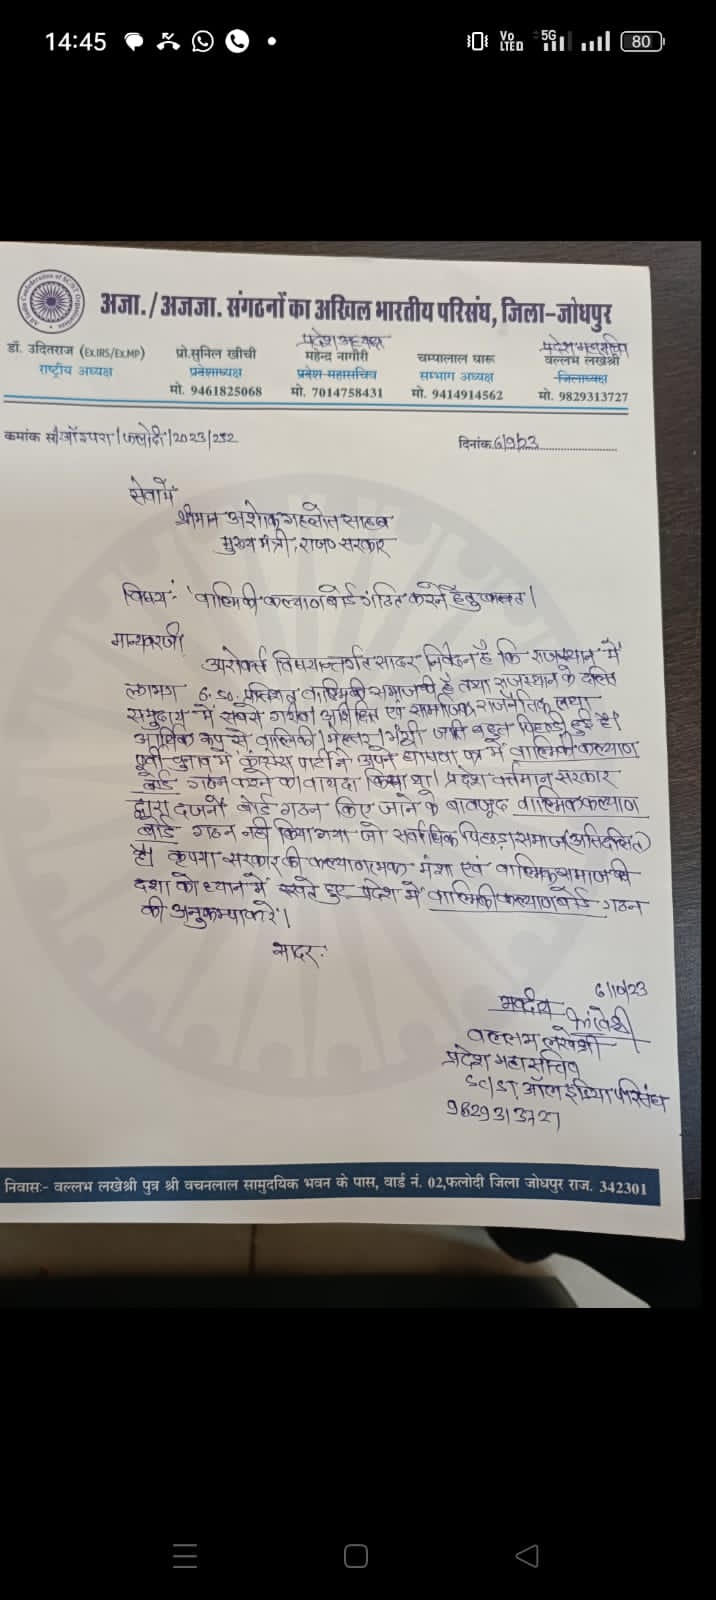 14:45
Vo LTED 5G 80
अजा./अजजा. संगठनों का अखिल भारतीय परिसंघ, जिला-जोधपुर
प्रदेश अध्यक्ष प्रदेश महासचिव
डॉ. उदितराज (Ex.IRS/Ex.MP) प्रो.सुनिल खीची महेन्द्र नागौरी चम्पालाल घारू वल्लभ लखेश्री
राष्ट्रीय अध्यक्ष प्रदेशाध्यक्ष प्रदेश-महासचिव सम्भाग अध्यक्ष जिलाध्यक्ष
मो. 9461825068 मो. 7014758431 मो. 9414914562 मो. 9829313727
कमांक सं /फलोदी/2023/252 दिनांक 6/9/23
सेवामें
श्रीमान अशोक गहलोत साहब
मुख्य मंत्री, राज० सरकार
विषय: वाल्मिकी कल्याण बोर्ड गठित करने हेतु
मान्यवरजी
विषयान्तर्गत सादर निवेदन है कि राजस्थान में
लगभग 6.50 प्रतिशत वाल्मिकी समाज की है तथा राजस्थान के दलित
समुदाय में सबसे गरीब अशिक्षित एवं सामाजिक राजनैतिक तथा
आर्थिक रूप से वाल्मिकी / मेहतर / भंगी जाति बहुत पिछड़ी हुई है।
पूर्व चुनाव में कांग्रेस पार्टी ने अपने घोषणा पत्र में वाल्मिकी कल्याण
बोर्ड गठन करने का वायदा किया था। प्रदेश वर्त्तमान सरकार
द्वारा दर्जनों बोर्ड गठन किए जाने के बावजूद वाल्मिक कल्याण
बोर्ड गठन नही किया गया जो सर्वाधिक पिछड़ा समाज (अतिदलित)
है। कृपया सरकार की कल्याणात्मक मंशा एवं वाल्मिक समाज की
दशा को ध्यान में रखते हुए प्रदेश में वाल्मिकी कल्याण बोर्ड गठन
की अनुकम्पा करें।
सादर:
6/10/23
भवदीय
वल्लभ लखेश्री
प्रदेश महासचिव
SC/ST ऑल इंडिया परिसंघ
9829313727
निवासः- वल्लभ लखेश्री पुत्र श्री वचनलाल सामुदयिक भवन के पास, वार्ड नं. 02,फलोदी जिला जोधपुर राज. 342301